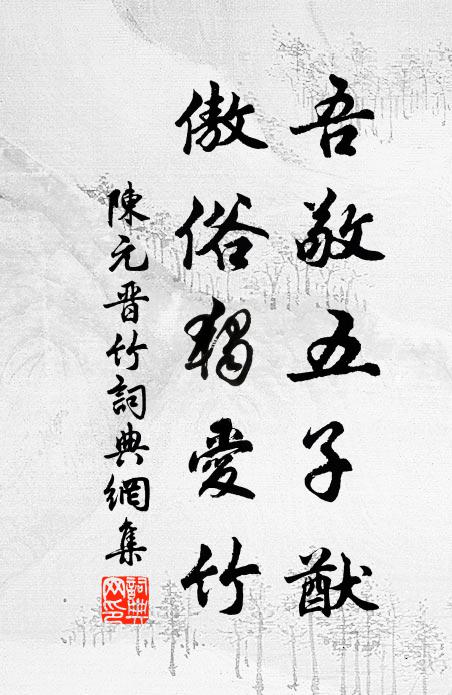 吾敬五子猷
傲俗獨愛竹
陳元晋竹詞典網集
詞典